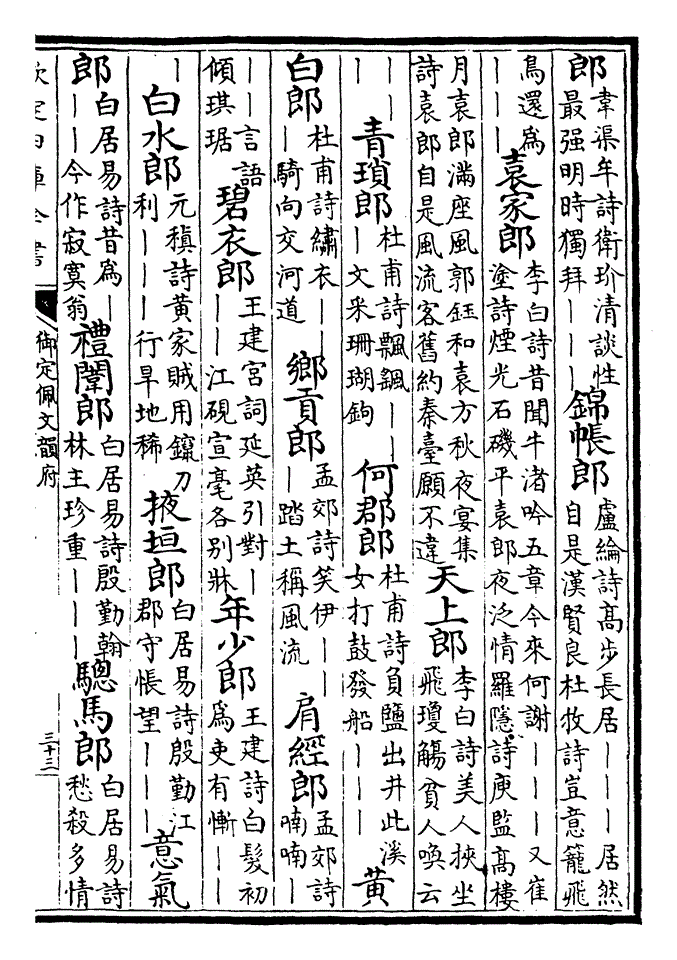 郎韋渠牟詩衛玠清談性最强明時獨拜丨丨丨錦帳郎盧綸詩高步長居丨丨丨居然自是漢賢良杜牧詩豈意籠飛
鳥還為丨丨丨袁家郎李白詩昔聞牛渚吟五章今來何謝丨丨丨又崔塗詩煙光石磯平袁郎夜泛情羅隱詩庾監高樓
月袁郎滿座風郭鈺和袁方秋夜宴集詩袁郎自是風流客舊約秦臺願不違天上郎李白詩美人挾坐飛瓊觴貧人喚云
丨丨丨青瑣郎杜甫詩飄飄丨丨丨文采珊瑚鉤何郡郎杜甫詩負鹽出井此溪女打鼓發船丨丨丨黄
白郎杜甫詩繡衣丨丨丨騎向交河道鄉貢郎孟郊詩笑伊丨丨丨踏土稱風流肩經郎孟郊詩喃喃丨
丨丨言語傾琪琚碧衣郎王建宮詞延英引對丨丨丨江硯宣毫各別牀年少郎王建詩白髮初為吏有慚丨丨
丨白水郎元稹詩黄家賊用鑹刀利丨丨丨行旱地稀掖垣郎白居易詩殷勤江郡守悵望丨丨丨意氣
郎白居易詩昔為丨丨丨今作寂寞翁禮闈郎白居易詩殷勤翰林主珍重丨丨丨驄馬郎白居易詩愁殺多情
欽定四庫全書
御定佩文韻府
三十三